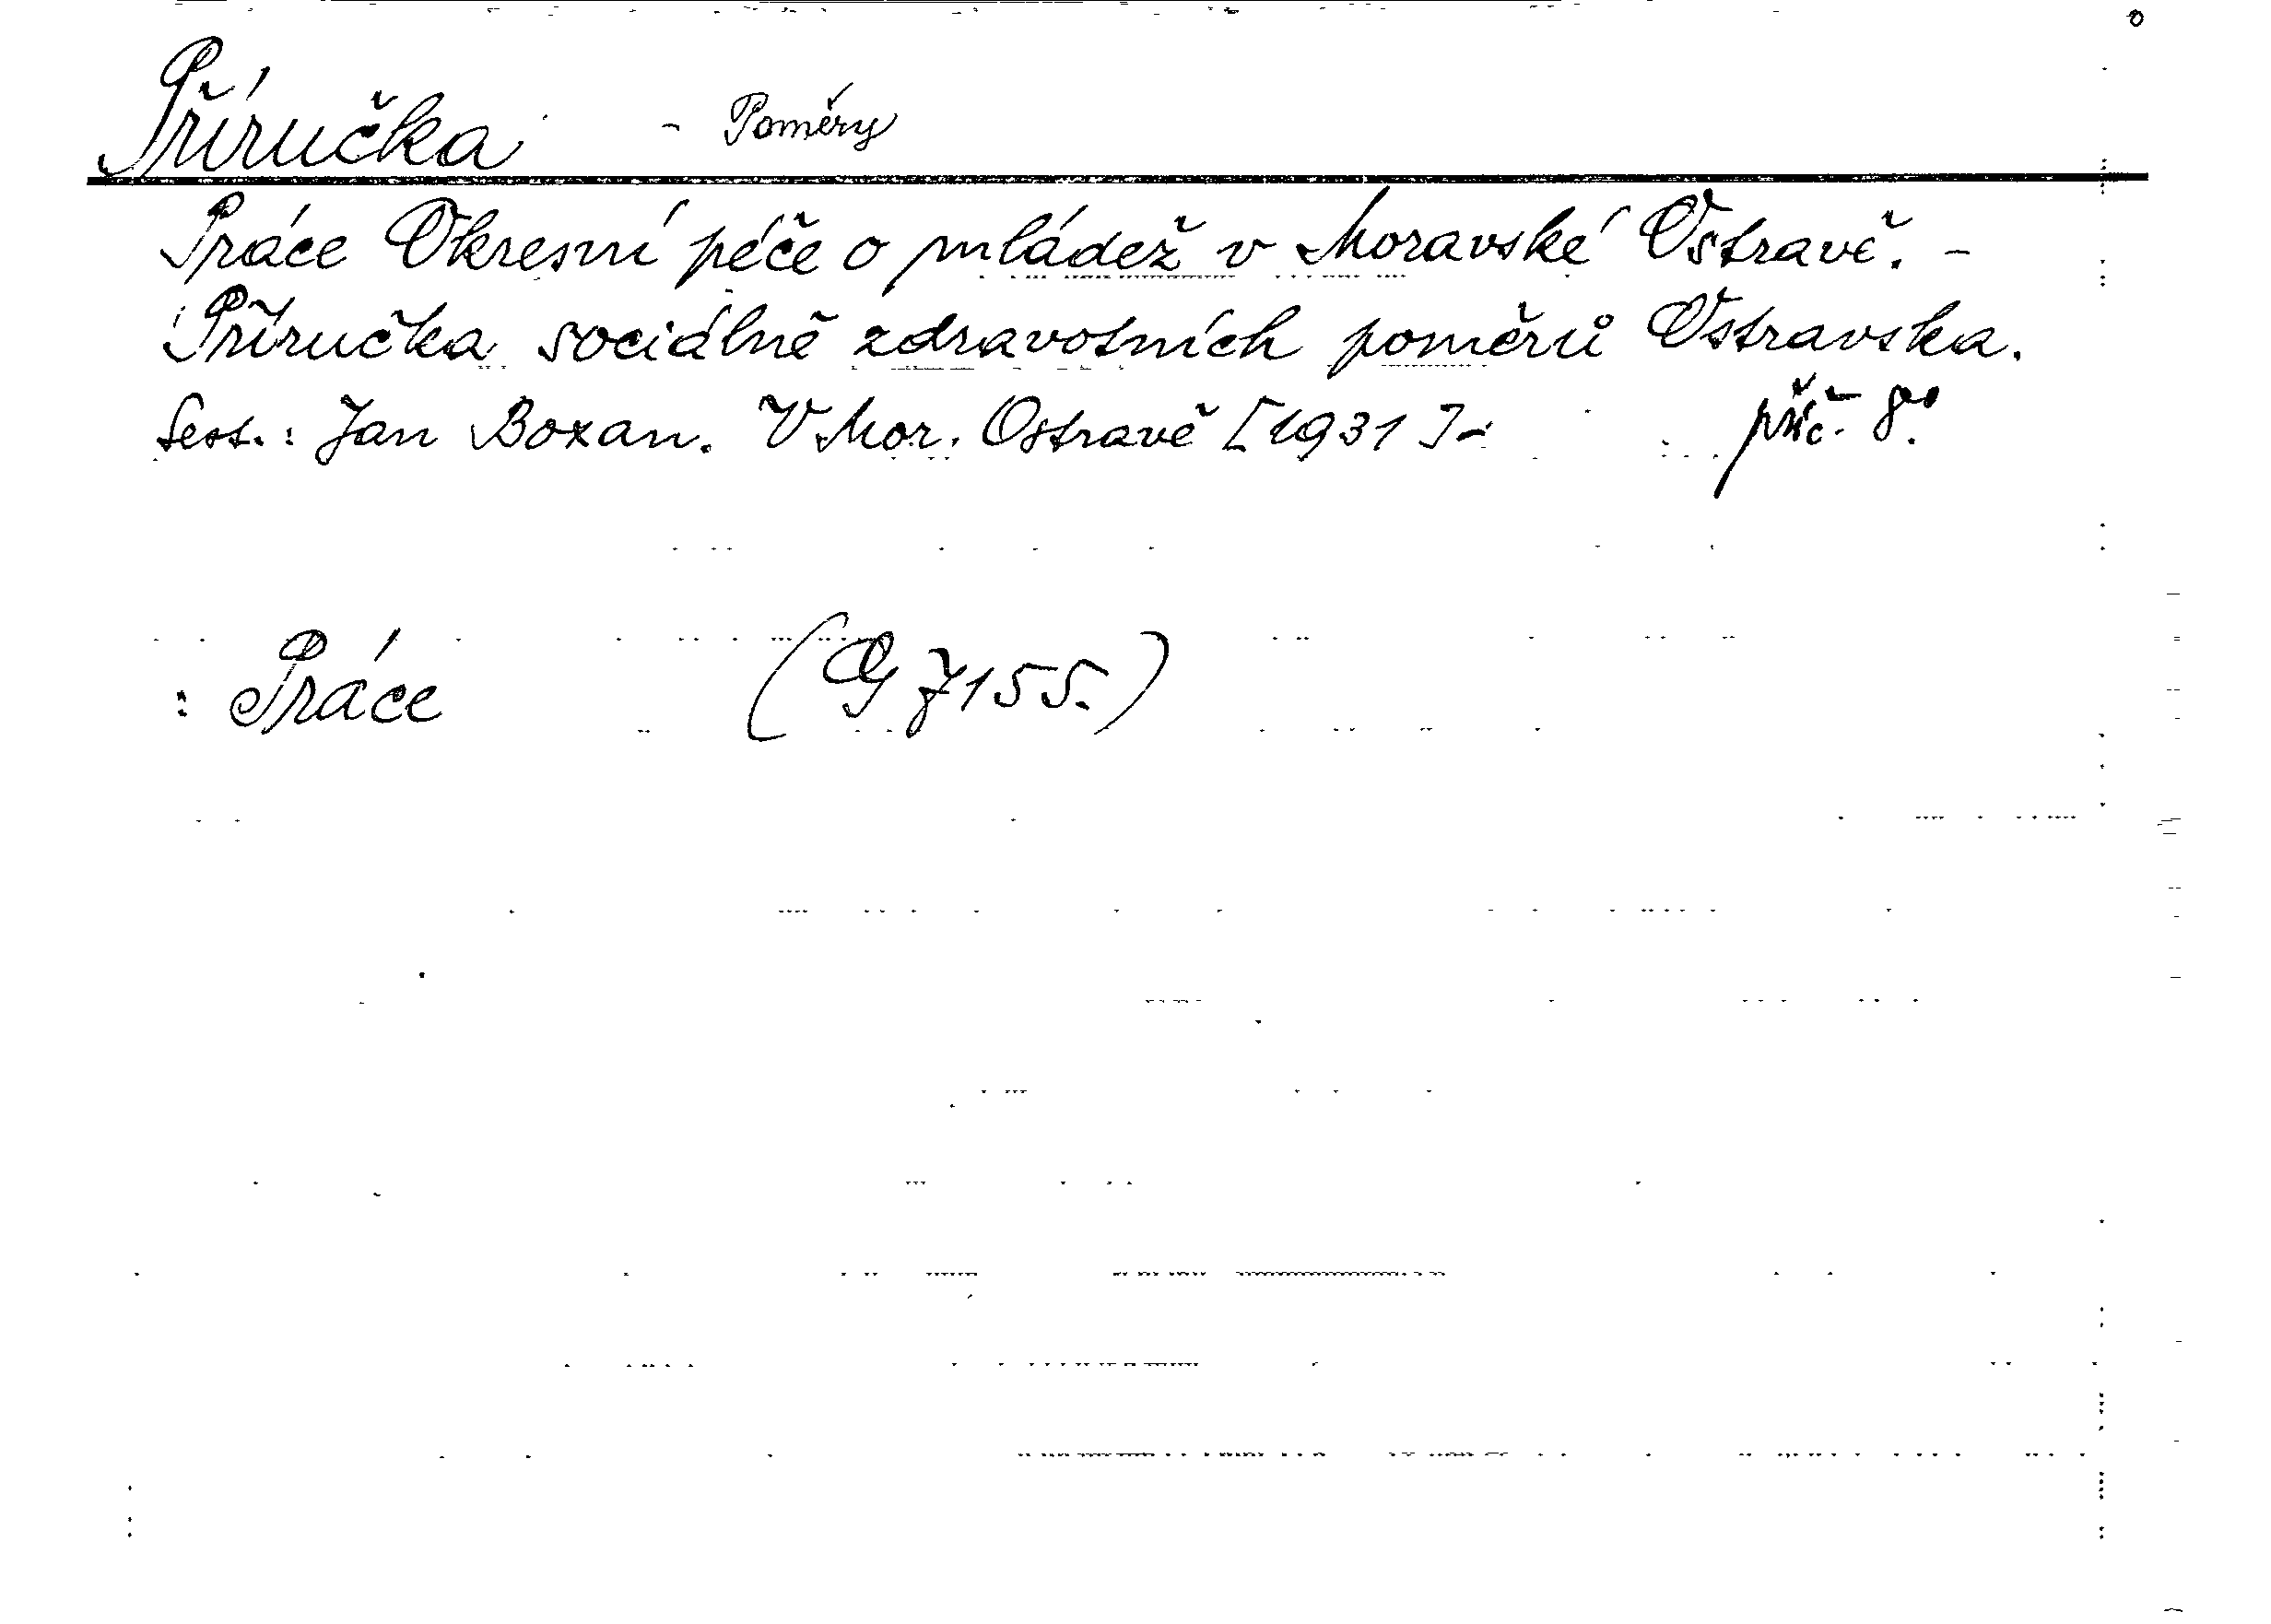 Příručka - Poměry
Práce Okresní péče o mládež v Moravské Ostravě. -
Příručka sociálně zdravotních poměrů Ostravska.
Sest.: Jan Boxan. V Mor. Ostravě [1931]- příč. 8°.
: Práce (G 7155.)